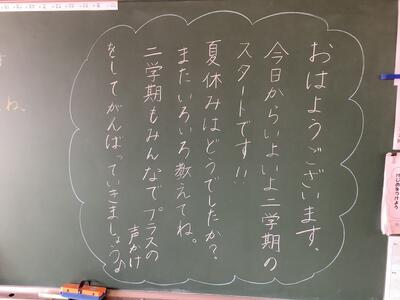 おはようございます。
今日からいよいよ二学期の
スタートです!!
夏休みはどうでしたか？
またいろいろ教えてね。
二学期もみんなでプラスの声かけ
をしてがんばっていきましょうね